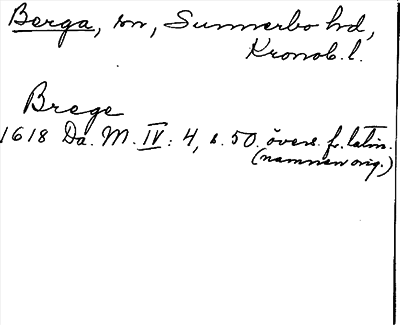 Berga, sn, Sunnerbo hd,
Kronob. l.
Brege
1618 Da. M. IV: 4, s. 50. övers. fr. latin.
(namnen orig.)